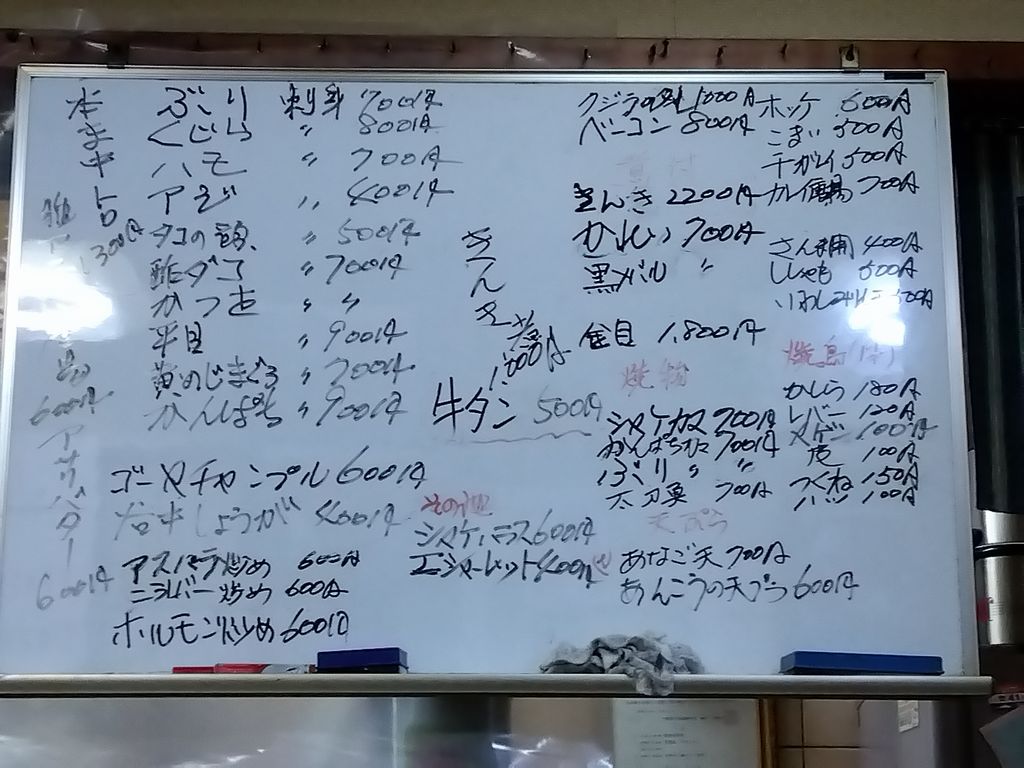 本ま中トロ 1300円
ぶり 刺身 700円
くじら 〃 800円
ハモ 〃 700円
アジ 〃 400円
タコの頭 〃 500円
酢ダコ 〃 700円
かつを 〃 〃
平目 〃 900円
黄めじまぐろ 〃 700円
かんぱち 〃 900円
600円
アサリバター 600円
ゴーヤチャンプル 600円
谷中しょうが 400円
アスパラ炒め 600円
ニラレバー炒め 600円
ホルモン炒め 600円
きんき
1,800円
牛タン 500円
その他
シャケハラス 600円
エシャーレット 400円
クジラの 1000円
ベーコン 800円
きんき 2200円
かれい 700円
黒メバル 〃
金目 1,800円
焼物
シャケカマ 700円
かんぱちカマ 700円
ぶり 〃 〃
太刀魚 700円
天ぷら
あなご天 700円
あんこうの天プラ 600円
ホッケ 600円
こまい 500円
干ガレイ 500円
700円
さんま開 400円
ししゃも 500円
いわし
焼鳥
かしら 180円
レバー 120円
100円
皮 100円
つくね 150円
ハツ 100円